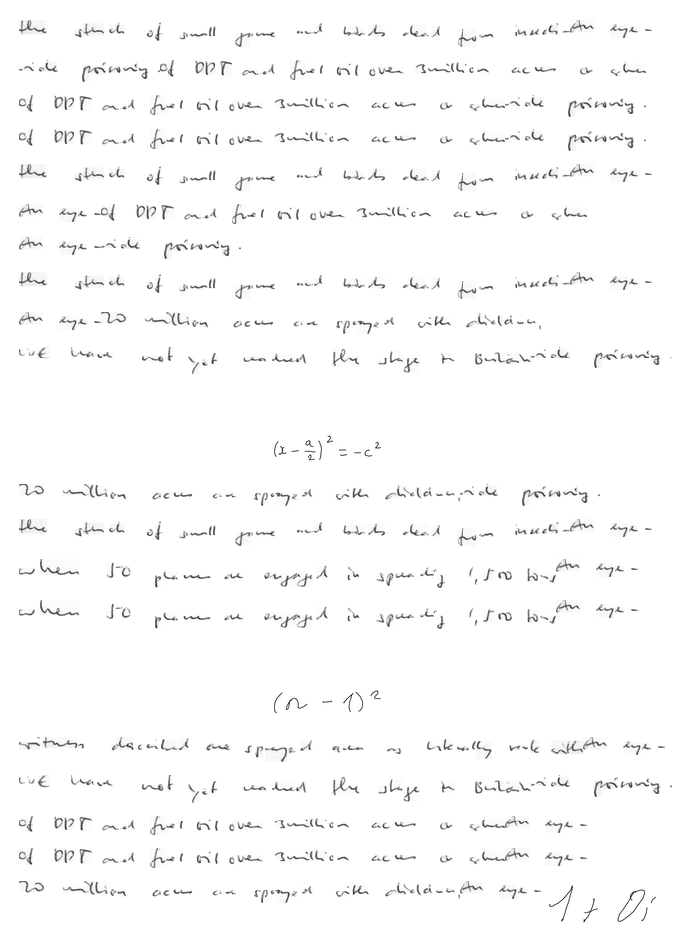 the stench of small game and birds dead from insecti-An eye-
-cide poisoning of DDT and fuel oil over 3 million acres a when
of DDT and fuel oil over 3 million acres a when-cide poisoning.
of DDT and fuel oil over 3 million acres a when-cide poisoning.
the stench of small game and birds dead from insecti-An eye-
An eye-of DDT and fuel oil over 3 million acres a when
An eye-cide poisoning.
the stench of small game and birds dead from insecti-An eye-
An eye-20 million acres are sprayed with dieldrin,
WE have not yet reached the stage in Britain-cide poisoning.
(x - a/2)^2 = -c^2
20 million acres are sprayed with dieldrin,-cide poisoning.
the stench of small game and birds dead from insecti-An eye-
when 50 planes are engaged in spreading 1,500 tons An eye-
when 50 planes are engaged in spreading 1,500 tons An eye-
(n - 1)^2
witness described one sprayed area as literally with An eye-
WE have not yet reached the stage in Britain-cide poisoning.
of DDT and fuel oil over 3 million acres a when An eye-
of DDT and fuel oil over 3 million acres a when An eye-
20 million acres are sprayed with dieldrin, An eye-
1 + 0i